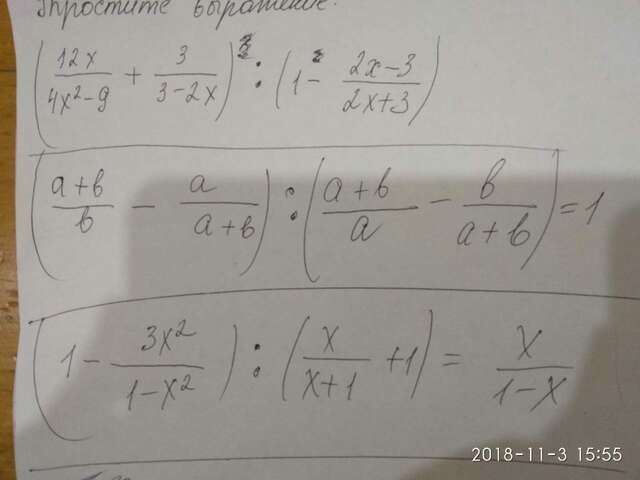 Упростите выражение:
(12x/4x²-9 + 3/3-2x) : (1- 2x-3/2x+3)
(a+b/b - a/a+b) : (a+b/a - b/a+b) = 1
(1- 3x²/1-x²) : (x/x+1 +1) = x/1-x
2018-11-3 15:55